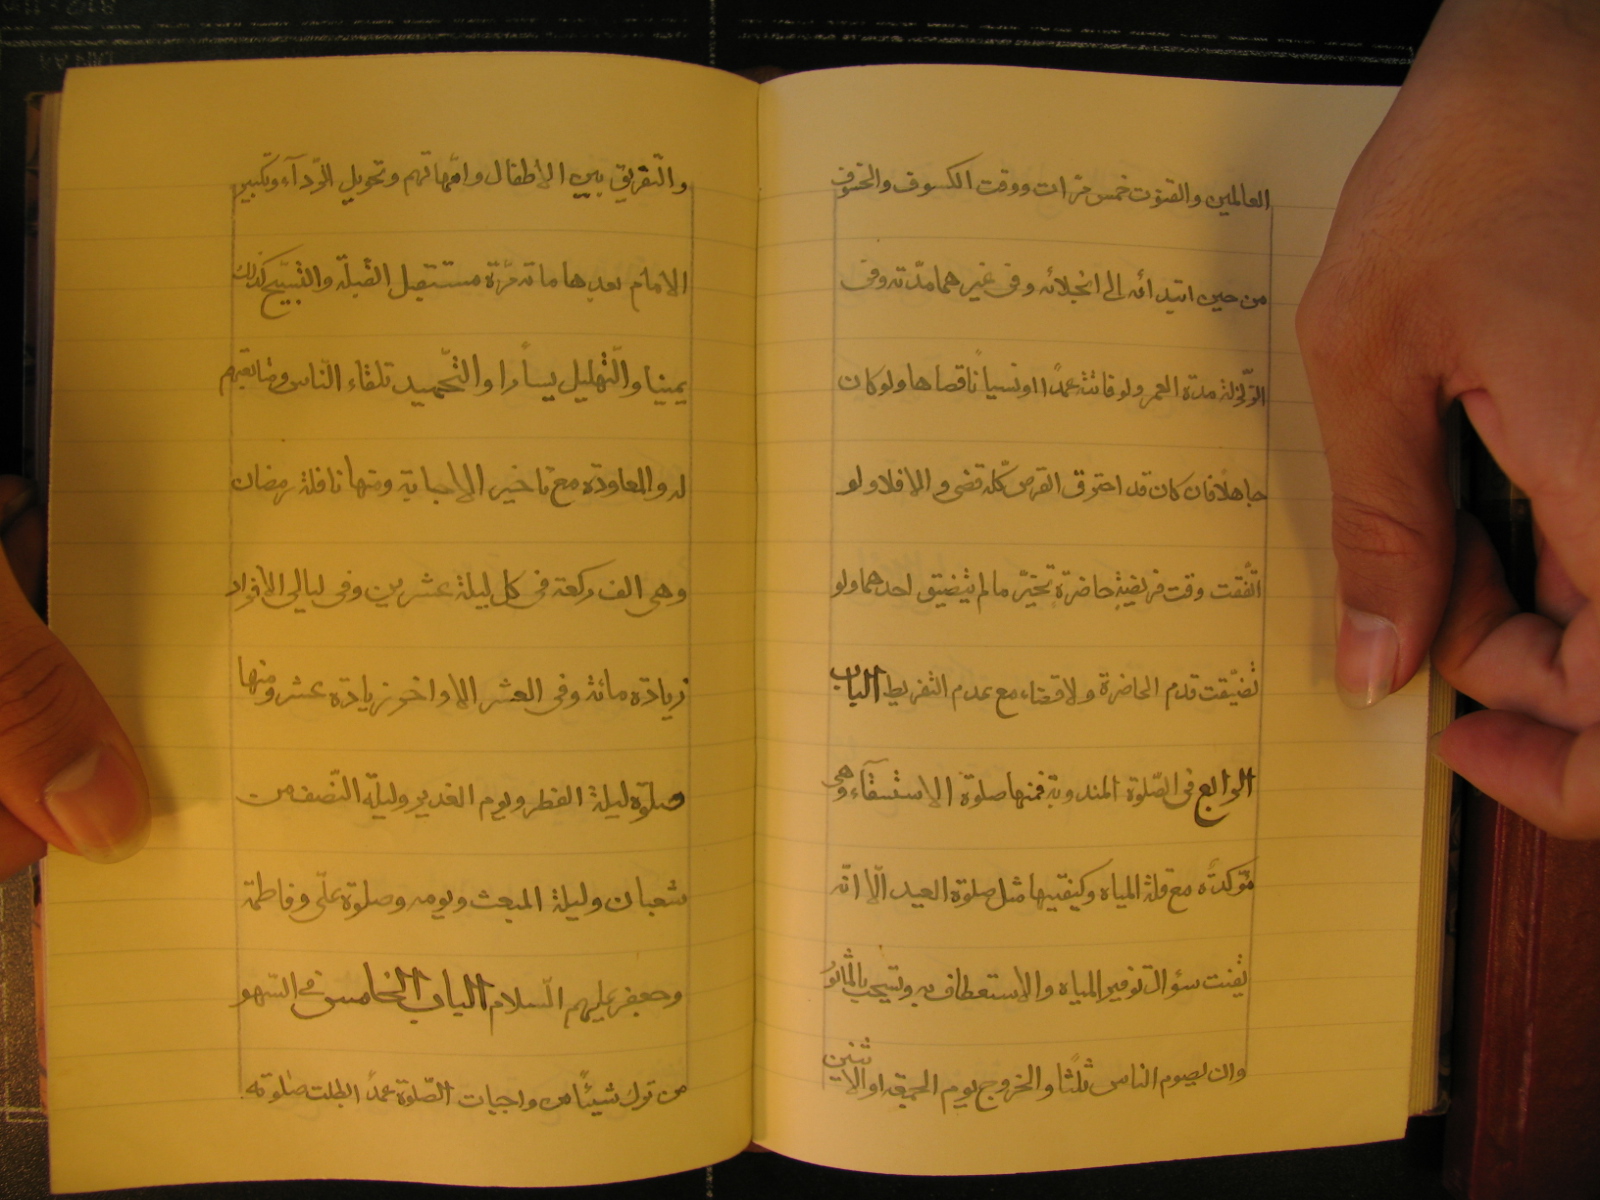 العالمين والقنوت خمس مرّات ووقت الكسوف والخسوف
من حين ابتدائه إلى انجلائه وفى غيرهما مدّته وفى
الزّلزلة مدّة العمر ولو فاتته عمدًا او نسيانًا قضاها ولو كان
جاهلًا فان كان قد احترق القرص كلّه قضى و الا فلا ولو
اتّفقت وقت فريضةٍ حاضرةٍ تخيّر ما لم يتضيق احدهما ولو
تضيّقت قدم الحاضرة ولا قضاء مع عدم التفريط الباب
الرابع فى الصّلوة المندوبة فمنها صلوة الاستسقآء وهى
مؤكدّه مع قلة المياه وكيفيتها مثل صلوة العيد الّا انّه
يقنت سؤال توفير المياه والاستعطاف به ويستحب بالمأثور
وان يصوم الناس ثلثًا والخروج يوم الجمعة او الاثنين
والتّفريق بين الاطفال وامّهاتهم وتحويل الرّدآء وتكبير
الامام بعدها ماته مرّة مستقبل القبلة والتسبيح كذلك
يمينا والتّهليل يسارًا والتّحميد تلقاء النّاس ومتابعتهم
له والمعاودة مع تاخير الاجابة ومنها نافلة رمضان
وهى الف ركعة فى كل ليلة عشرين وفى ليالى الافراد
زيادة مائة وفى العشر الاواخر زيادة عشر ومنها
صلوة ليلة الفطر ويوم الغدير وليلة النّصف من
شعبان وليلة المبعث ويومه وصلوة علىّ وفاطمة
وجعفر عليهم السّلام الباب الخامس فى السّهو
من ترك شيئًا من واجبات الصّلوة عمدًا بطلت صلوته